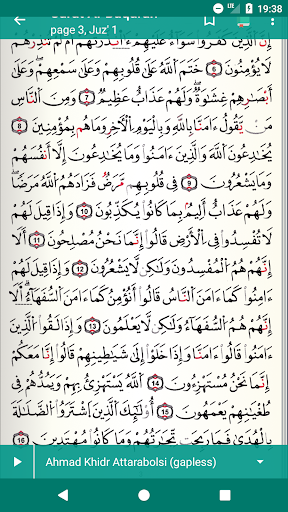 19:38
page 3, Juz' 1
إِنَّ ٱلَّذِينَ كَفَرُوا۟ سَوَآءٌ عَلَيْهِمْ ءَأَنذَرْتَهُمْ أَمْ لَمْ تُنذِرْهُمْ
لَا يُؤْمِنُونَ ٦ خَتَمَ ٱللَّهُ عَلَىٰ قُلُوبِهِمْ وَعَلَىٰ سَمْعِهِمْ ۖ وَعَلَىٰٓ
أَبْصَٰرِهِمْ غِشَٰوَةٌ ۖ وَلَهُمْ عَذَابٌ عَظِيمٌ ٧ وَمِنَ ٱلنَّاسِ
مَن يَقُولُ ءَامَنَّا بِٱللَّهِ وَبِٱلْيَوْمِ ٱلْءَاخِرِ وَمَا هُم بِمُؤْمِنِينَ ٨
يُخَٰدِعُونَ ٱللَّهَ وَٱلَّذِينَ ءَامَنُوا۟ وَمَا يَخْدَعُونَ إِلَّآ أَنفُسَهُمْ
وَمَا يَشْعُرُونَ ٩ فِى قُلُوبِهِم مَّرَضٌ فَزَادَهُمُ ٱللَّهُ مَرَضًا ۖ
وَلَهُمْ عَذَابٌ أَلِيمٌۢ بِمَا كَانُوا۟ يَكْذِبُونَ ١٠ وَإِذَا قِيلَ لَهُمْ
لَا تُفْسِدُوا۟ فِى ٱلْأَرْضِ قَالُوٓا۟ إِنَّمَا نَحْنُ مُصْلِحُونَ ١١
أَلَآ إِنَّهُمْ هُمُ ٱلْمُفْسِدُونَ وَلَٰكِن لَّا يَشْعُرُونَ ١٢ وَإِذَا قِيلَ لَهُمْ
ءَامِنُوا۟ كَمَآ ءَامَنَ ٱلنَّاسُ قَالُوٓا۟ أَنُؤْمِنُ كَمَآ ءَامَنَ ٱلسُّفَهَآءُ ۗ أَلَآ
إِنَّهُمْ هُمُ ٱلسُّفَهَآءُ وَلَٰكِن لَّا يَعْلَمُونَ ١٣ وَإِذَا لَقُوا۟ ٱلَّذِينَ
ءَامَنُوا۟ قَالُوٓا۟ ءَامَنَّا وَإِذَا خَلَوْا۟ إِلَىٰ شَيَٰطِينِهِمْ قَالُوٓا۟ إِنَّا مَعَكُمْ
إِنَّمَا نَحْنُ مُسْتَهْزِءُونَ ١٤ ٱللَّهُ يَسْتَهْزِئُ بِهِمْ وَيَمُدُّهُمْ فِى
طُغْيَٰنِهِمْ يَعْمَهُونَ ١٥ أُو۟لَٰٓئِكَ ٱلَّذِينَ ٱشْتَرَوُا۟ ٱلضَّلَٰلَةَ
بِٱلْهُدَىٰ فَمَا رَبِحَت تِّجَٰرَتُهُمْ وَمَا كَانُوا۟ مُهْتَدِينَ ١٦
Ahmad Khidr Attarabolsi (gapless)